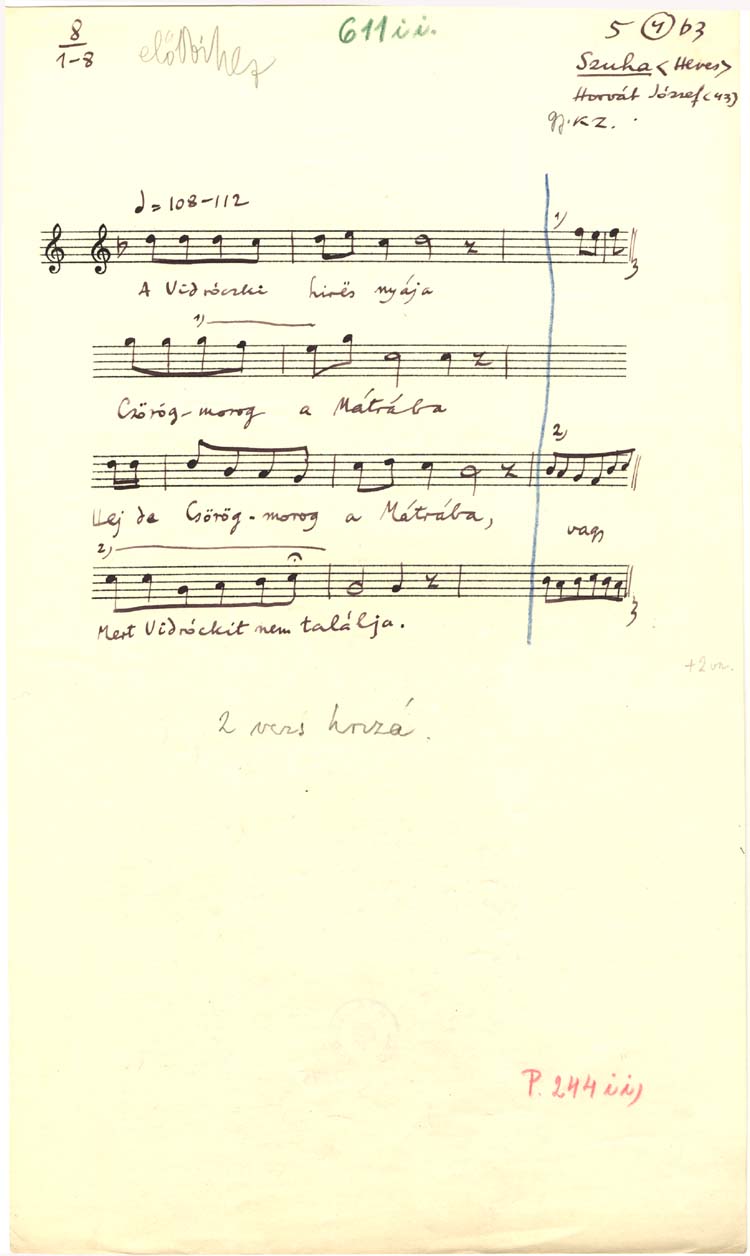 8
1-8
előbbihez
611 i i.
5 (4) b3
Szuha <Heves>
Horvát József (43)
gy. KZ.
= 108-112
1)
A Vidróczki hirës nyája
1)
Csörög-morog a Mátrába
2)
Hej de Csörög-morog a Mátrába,
vagy
2)
Mert Vidróckit nem találja.
+2 vsz.
2 vers hozzá.
P. 244 i i)